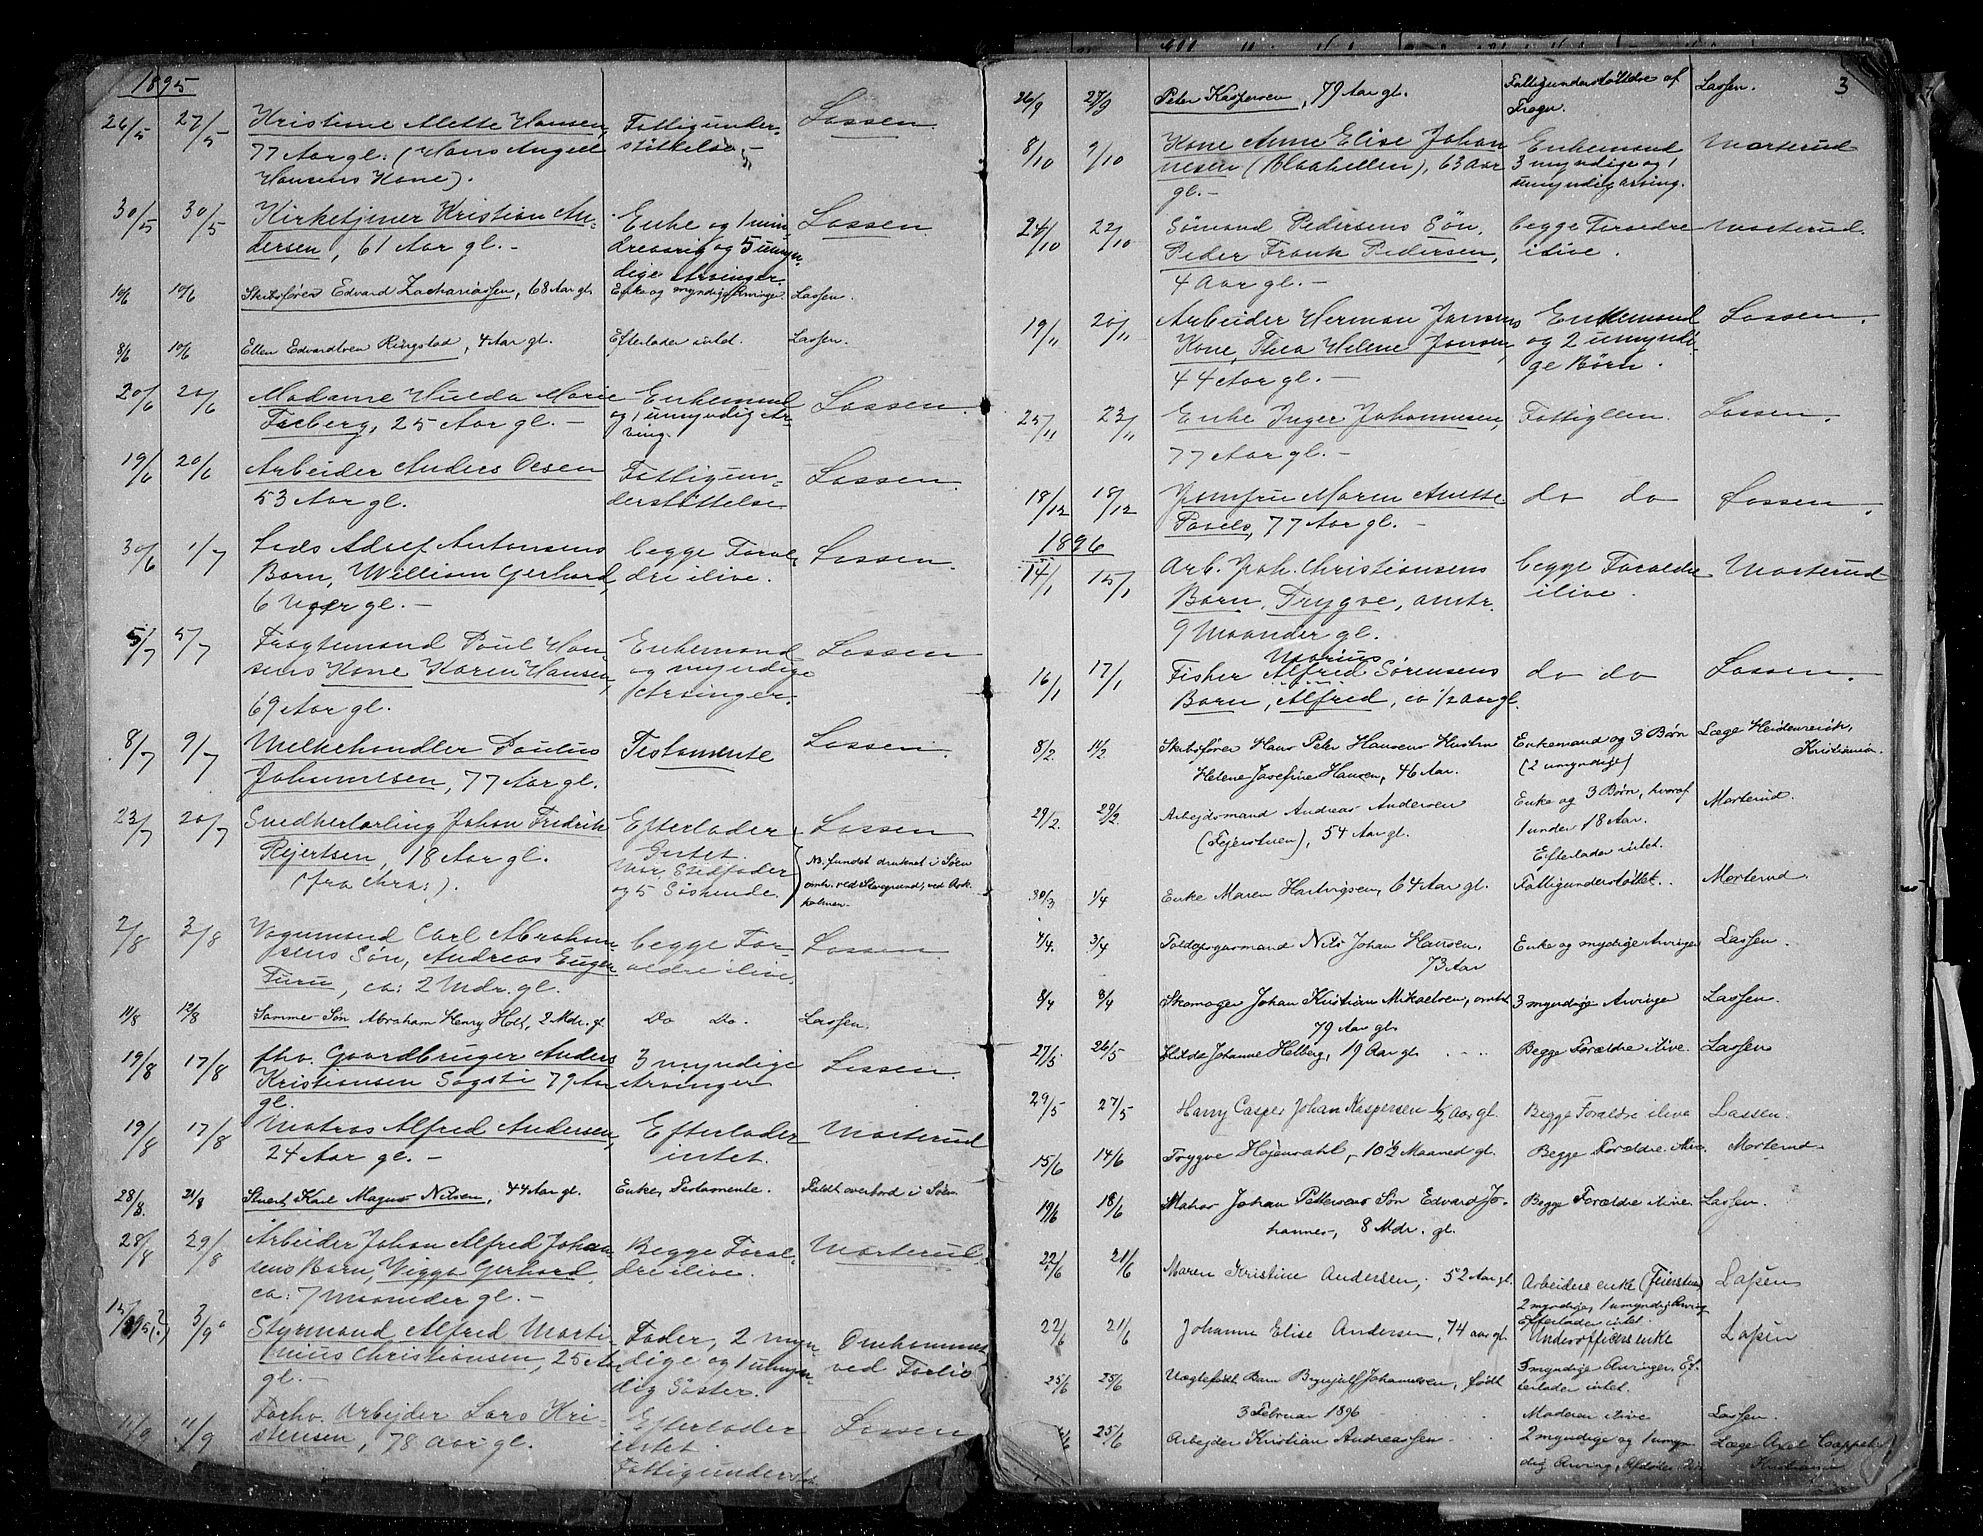 1895
26/5 27/5 Kristine Alette Hansen, Fattigunder- Lassen.
77 Aar gl. (Hans Angell støttelse.-
Hansens Kone).
30/5 30/5 Kirketjener Kristian An- Enke og 1 min Lassen
dersen, 61 Aar gl. - dreaarig og 5 umyn-
dige Arvinger.
10/6 10/6 Skibsfører Edvard Zachariassen, 68 Aar gl. Enke og myndige Arvinger Lassen.
8/6 10/6 Ellen Edvardsen Ringstad, 4 Aar gl. Efterlader intet. Lassen.
20/6 20/6 Madame Hulda Marie Enkemand Lassen.
Freberg, 25 Aar gl. - og 1 umyndig Ar-
ving.
19/6 20/6 Arbeider Anders Olsen Fattigun- Lassen.
53 Aar gl. derstøttelse
30/6 1/7 Lods Adolf Antonsens begge Foræl Lassen.
Barn, William Gerhard, dre ilive.
6 Uger gl. -
5/7 5/7 Fragtemand Poul Han Enkemand Lassen
sens Kone Karen Hansen, og myndige
69 Aar gl. Arvinger.
8/7 9/7 Melkehandler Paulus Testamente Lassen.
Johannesen, 77 Aar gl.
23/7 20/7 Snedkerlærling Johan Fredrik Efterlader Lassen
Rejertsen, 18 Aar gl. Intet. NB. fundet druknet i Søen
(fra Chra:). Mor, Stedfader
og 5 Søskende.
2/8 3/8 Vognmand Carl Abraham begge For- Lassen
sens Søn, Andreas Eugen ældre ilive.
Furu, ca: 2 Mdr. gl.
11/8 12/8 Sammes Søn Abraham Henry Holt, 2 Mdr. gl. Do Do. Lassen.
19/8 17/8 fhv. Gaardbruger Anders 3 myndige Lassen.
Kristiansen Sogsti 79 Aar Arvinger
gl.
19/8 17/8 Matros Alfred Andersen, Efterlader Morterud
24 Aar gl. - intet.
28/8. 21/8 Stuert Karl Magnus Nilsen, 44 Aar gl. Enke, Testamente. Faldt overbord i Søen
28/8 29/8 Arbeider Johan Alfred Johan- Begge Foræl- Morterud.
sens Barn, Viggo Gerhard, dre ilive.
ca: 7 Maaneder gl. -
3/9 Styrmand Alfred Marti Fader, 2 myn- Omkommet
nius Christiansen, 25 Aar dige og 1 umyn- ved Forlis
gl. - dig Søster.
11/9 11/9 Forhv. Arbejder Lars Kri- Efterlader Lassen
stensen, 78 Aar gl. intet.
Fattigunderstøt.
3
26/9 27/9 Peter Kaspersen, 79 Aar gl. Fattigunderstøttelse af Lassen.
Frogn.
8/10 9/10 Kone Anne Elise Johan Enkemand Morterud
nesen (Blaakellen), 63 Aar 3 myndige og 1
gl. - umyndig arving.
24/10 22/10 Sømand Pedersens Søn, begge Forældre Morterud.
Peder Frank Pedersen, ilive.
4 Aar gl. -
19/11 20/11 Arbeider Herman Jansens Enkemand Lassen.
Kone, Thea Helene Jansen, og 2 umyndi-
44 Aar gl. - ge Børn.
25/11 23/11 Enke Inger Johannesen, Fattiglem. Lassen.
77 Aar gl. -
18/12 18/12 Jomfru Maren Anette do do Lassen.
Pavels, 77 Aar gl. -
1896
14/1 15/1 Arb. Joh. Christiansens begge Forældre Morterud
Barn, Trygve, omtr. ilive.
9 Maaneder gl.
Marius
16/1 17/1 Fisker Alfred Sørensens do do Lassen.
Barn, Alfred, ca 1/2 aar gl.
8/2 11/2 Skibsfører Hans Peter Hansens Hustru Enkemand og 3 Børn Læge Heidenreich,
Helene Josefine Hansen, 46 Aar. (2 umyndige) Kristiania.
29/2. 29/2. Arbejdsmand Andreas Andersen Enke og 3 Børn, hvoraf Morterud.
(Fejerstuen), 54 Aar gl. 1 under 18 Aar.
Efterlader intet.
30/3 1/4 Enke Maren Hartvigsen, 64 Aar gl. Fattigunderstøttet. Morterud.
4/4. 3/4 Toldopsynsmand Nils Johan Hansen, Enke og myndige Arvinger Lassen.
73 Aar
8/4 8/4 Skomager Johan Kristian Mikaelsen, omtrl 3 myndige Arvinger Lassen.
79 Aar gl.
27/5. 26/5 Hilda Johanne Helberg, 19 Aar gl. Begge Forældre ilive. Lassen
29/5 27/5 Harry Casper Johan Kaspersen 1/2 aar gl. Begge Forældre ilive Lassen.
15/6 14/6 Trygve Højensahl, 10 1/2 Maaned gl. Begge Forældre ilive. Morterud.
19/6 18/6 Matros Johan Pettersens Søn Edvard Jo- Begge Forældre ilive. Lassen.
hannes, 8 Mdr. gl.
22/6 21/6 Maren Kristine Andersen, 52 Aar gl. Arbeiders enke (Feierstuen) Lassen
2 myndige, 1 umyndig Arving
efterlader intet.
22/6 21/6 Johanne Elise Andersen, 74 aar gl. Underofficersenke Lassen
3 myndige Arvinger. Ef-
terlader intet.
25/6 25/6 Uægtefødt Barn Brynjulf Johannesen, født
3 Februar 1896 Moderen ilive Lassen.
25/6 Arbejder Kristian Andreassen 2 myndige og 1 umyn Læge Axel Cappel
dig Arving, Kristiania